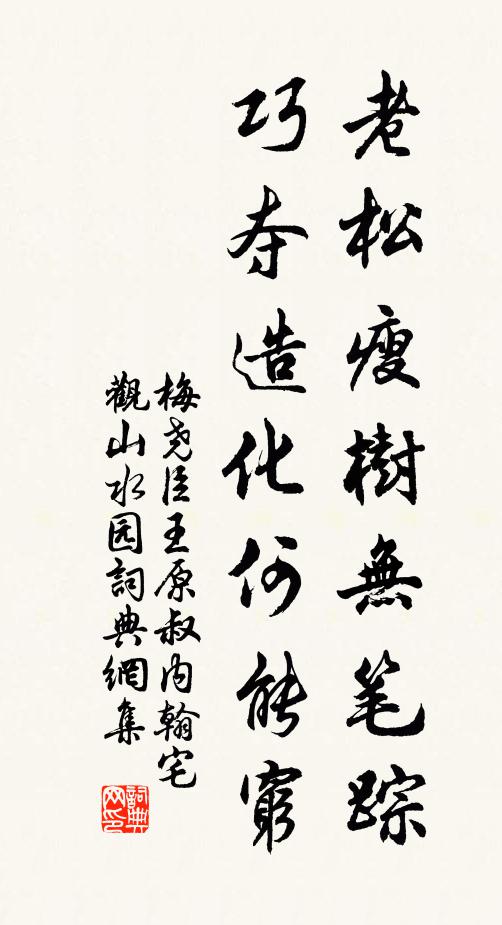 老松瘦樹無笔踪
巧夺造化何能窮
梅尧臣王原叔内翰宅
觀山水园詞典網集
詞典网印